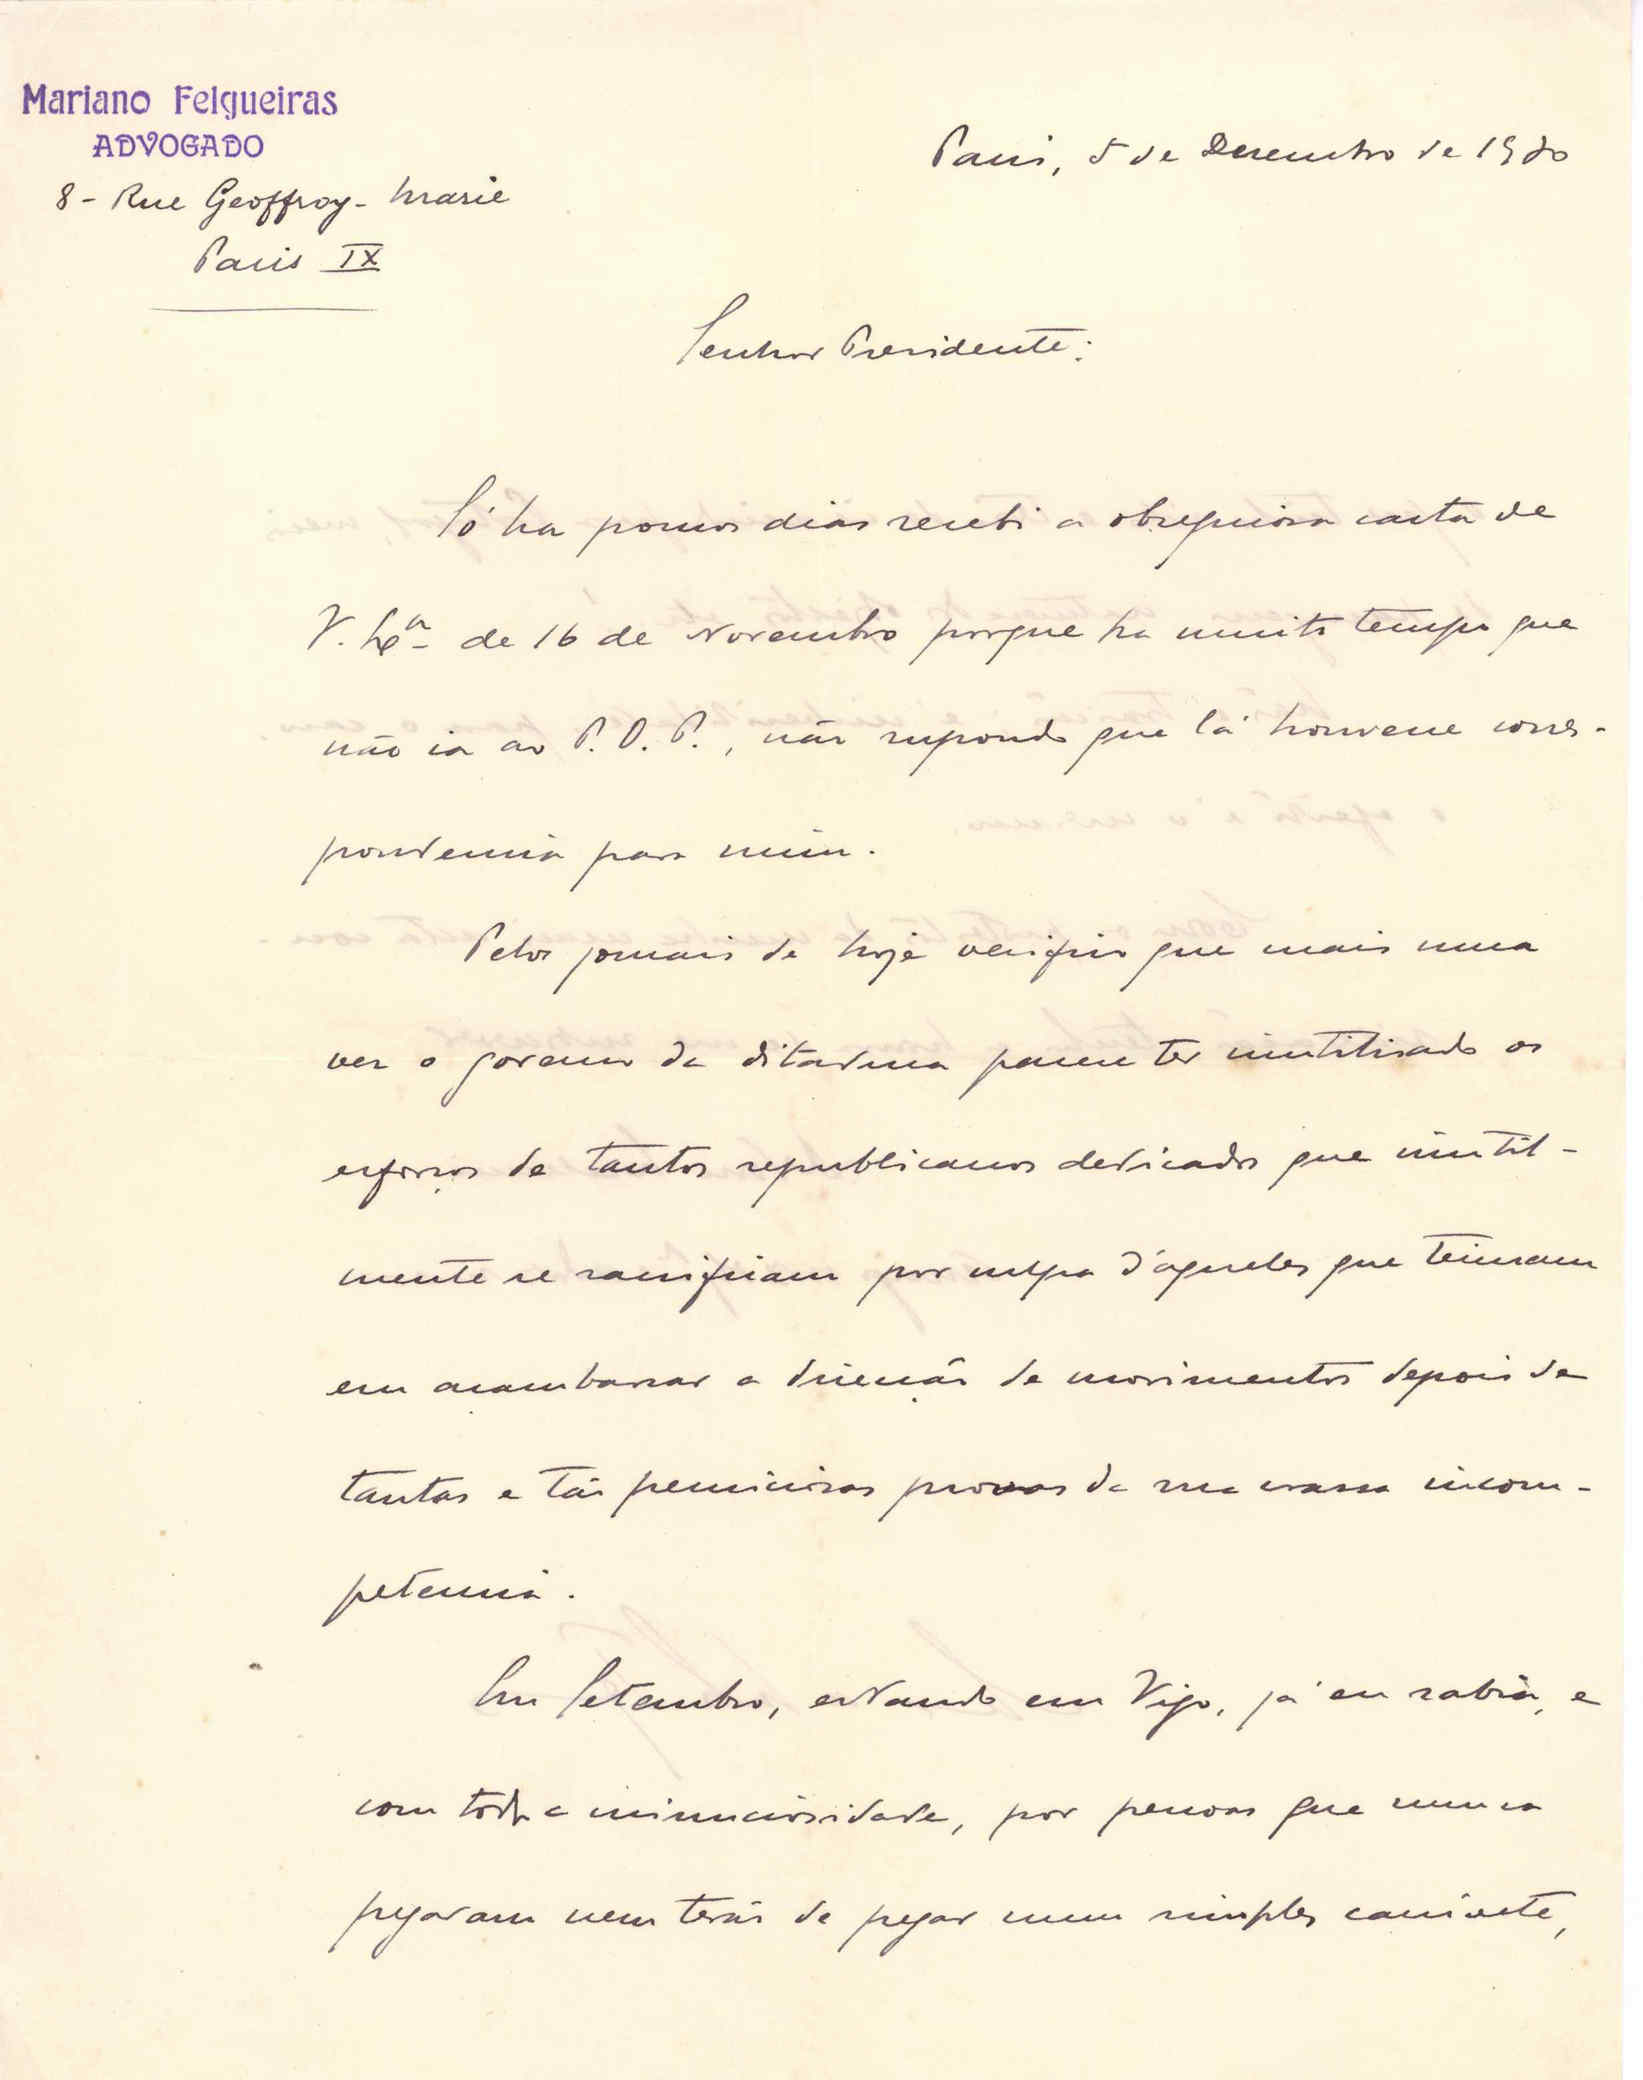 Mariano Felgueiras
ADVOGADO
8 - Rue Geoffroy - Marie
Paris IX
Paris, 5 de Dezembro de 1930
Senhor Presidente:
Só ha poucos dias recebi a obsequiosa carta de
V. Exª de 16 de Novembro porque ha muito tempo que
não ia ao P. O. P., não supondo que lá houvesse corres-
pondencia para mim.
Pelos jornais de hoje verifico que mais uma
vez o governo da ditadura parece ter inutilisado os
esforços de tantos republicanos dedicados que inutil-
mente se sacrificam por culpa d'aqueles que teimam
em açambarcar a direcção de movimentos depois de
tantas e tão perniciosas provas da sua crassa incom-
petencia.
Em Setembro, estando em Vigo, já eu sabia, e
com toda a minuciosidade, por pessoas que nunca
pegaram nem terão de pegar num simples canivete,